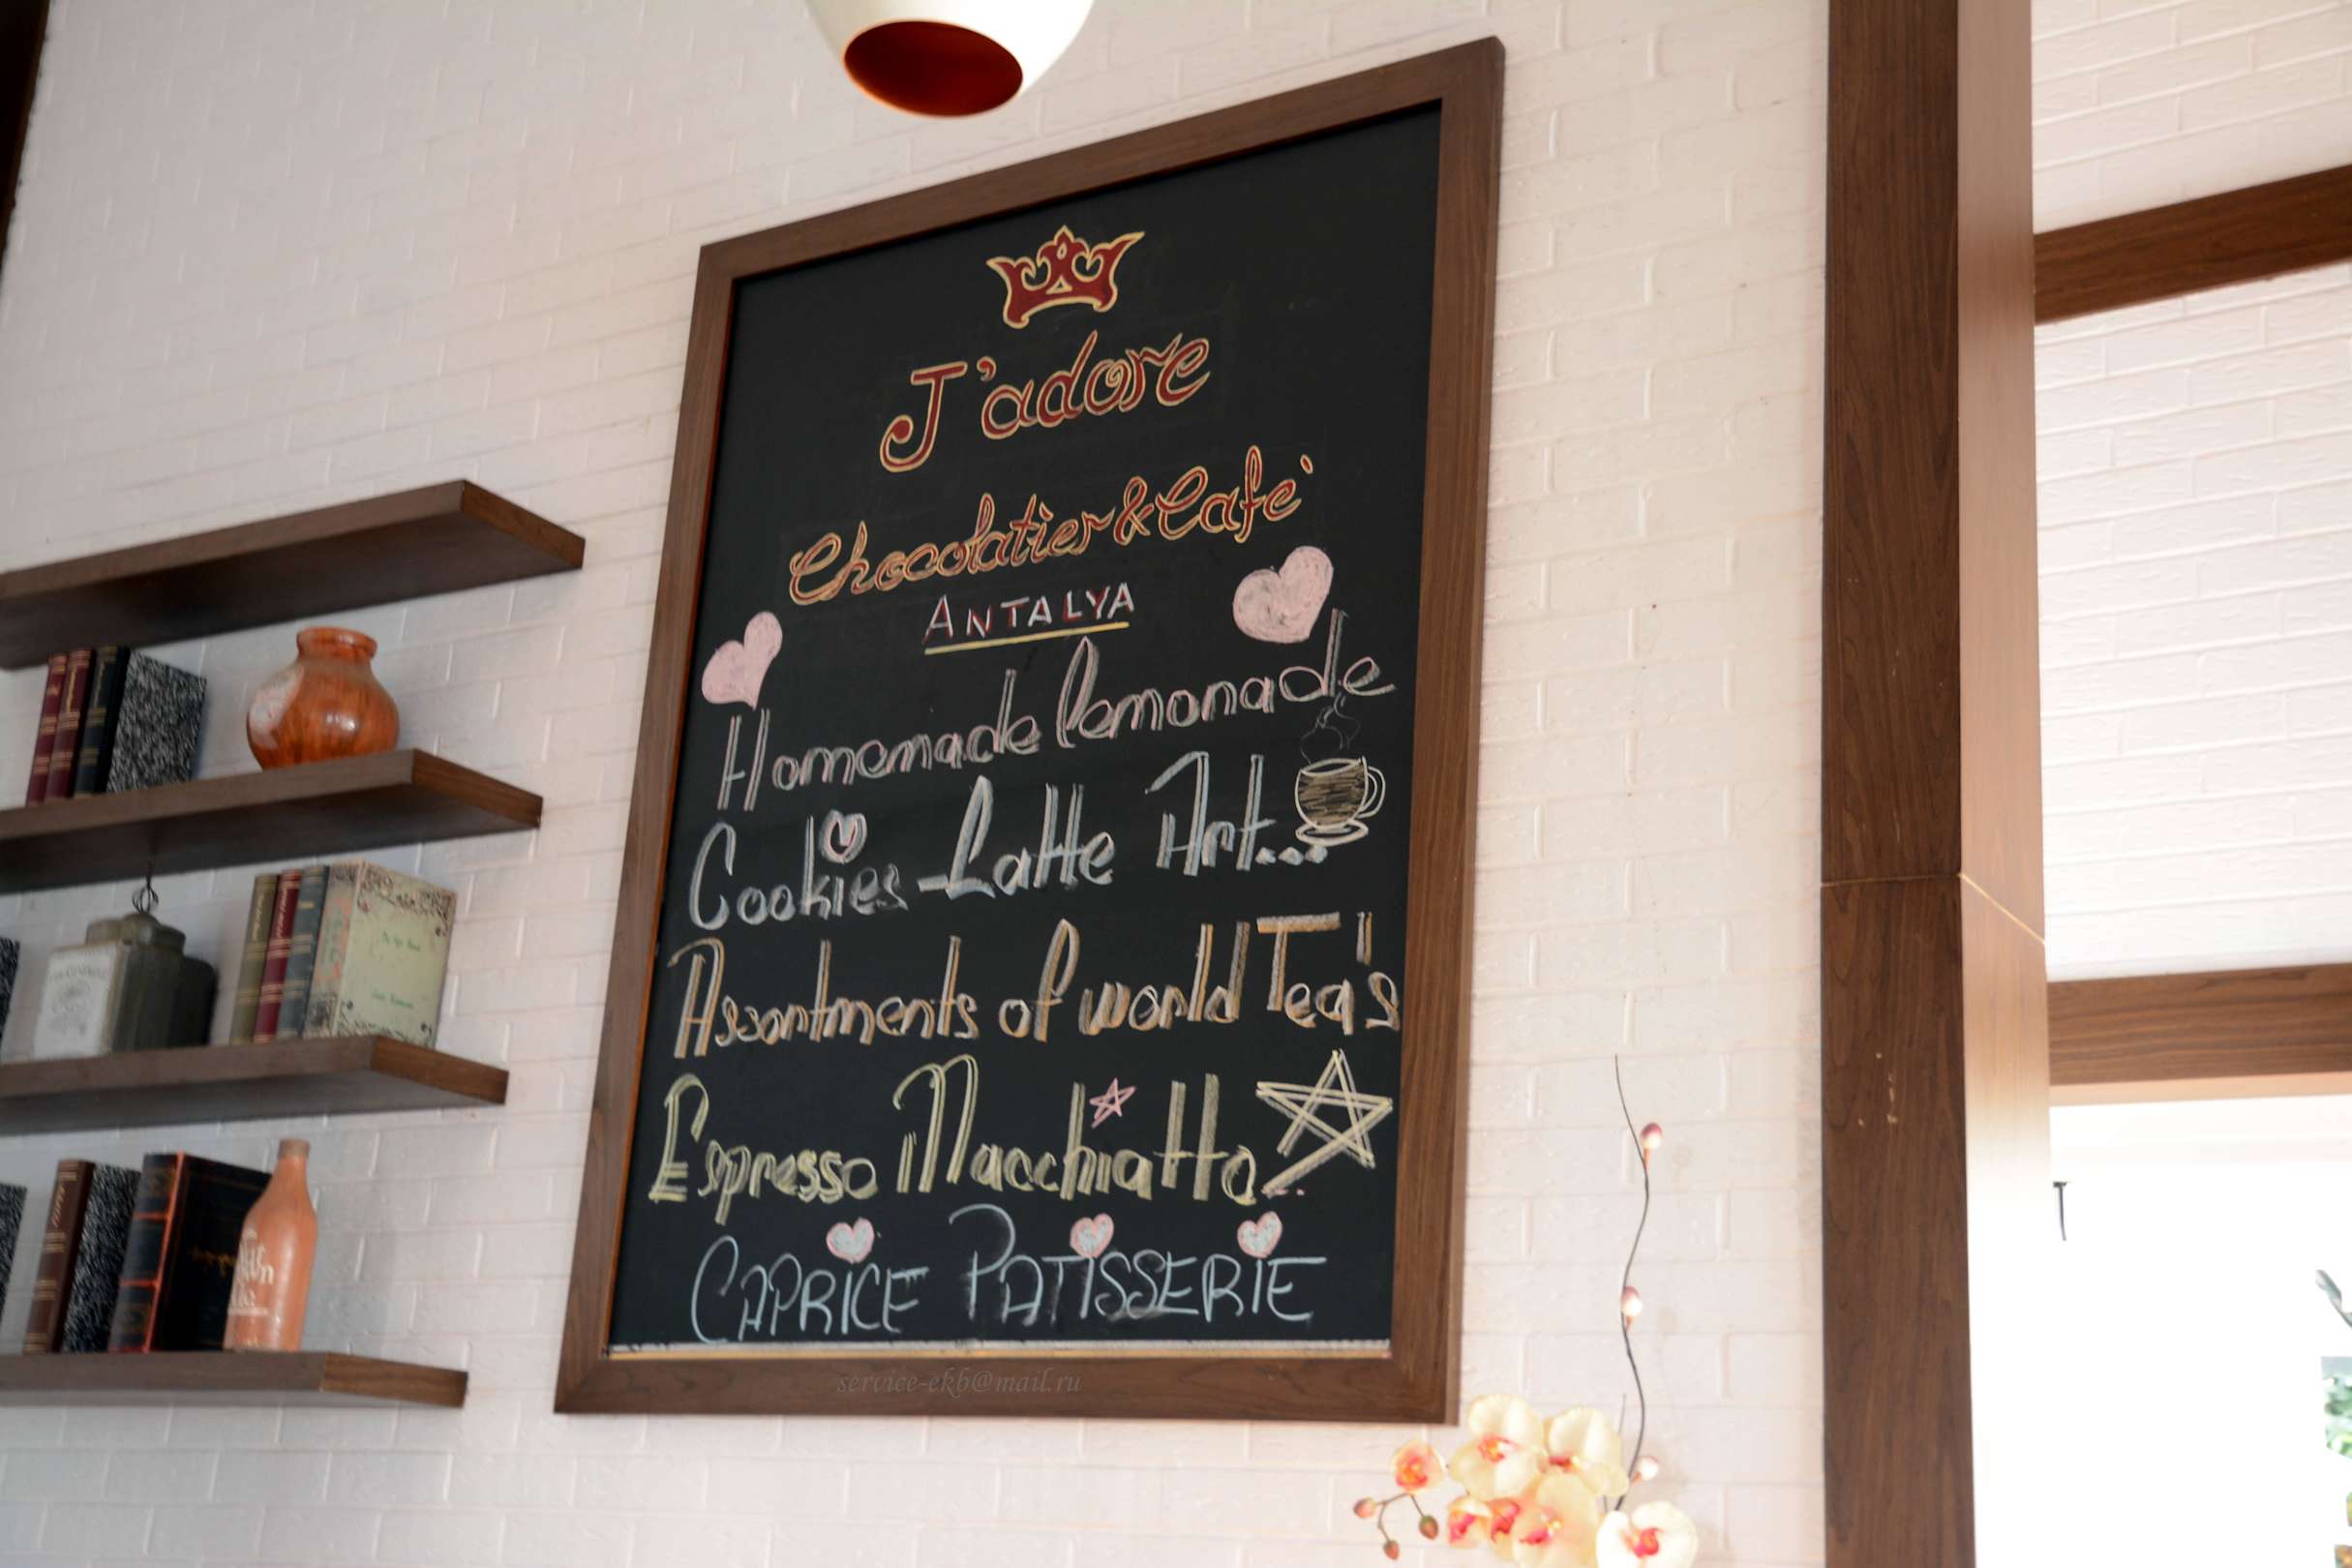 J'adore
Chocolatier & Cafè
ANTALYA
Homemade lemonade
Cookies - Latte Art...
Assortments of world Tea's
Espresso Macchiatto...
CAPRICE PATISSERIE
service-ekb@mail.ru